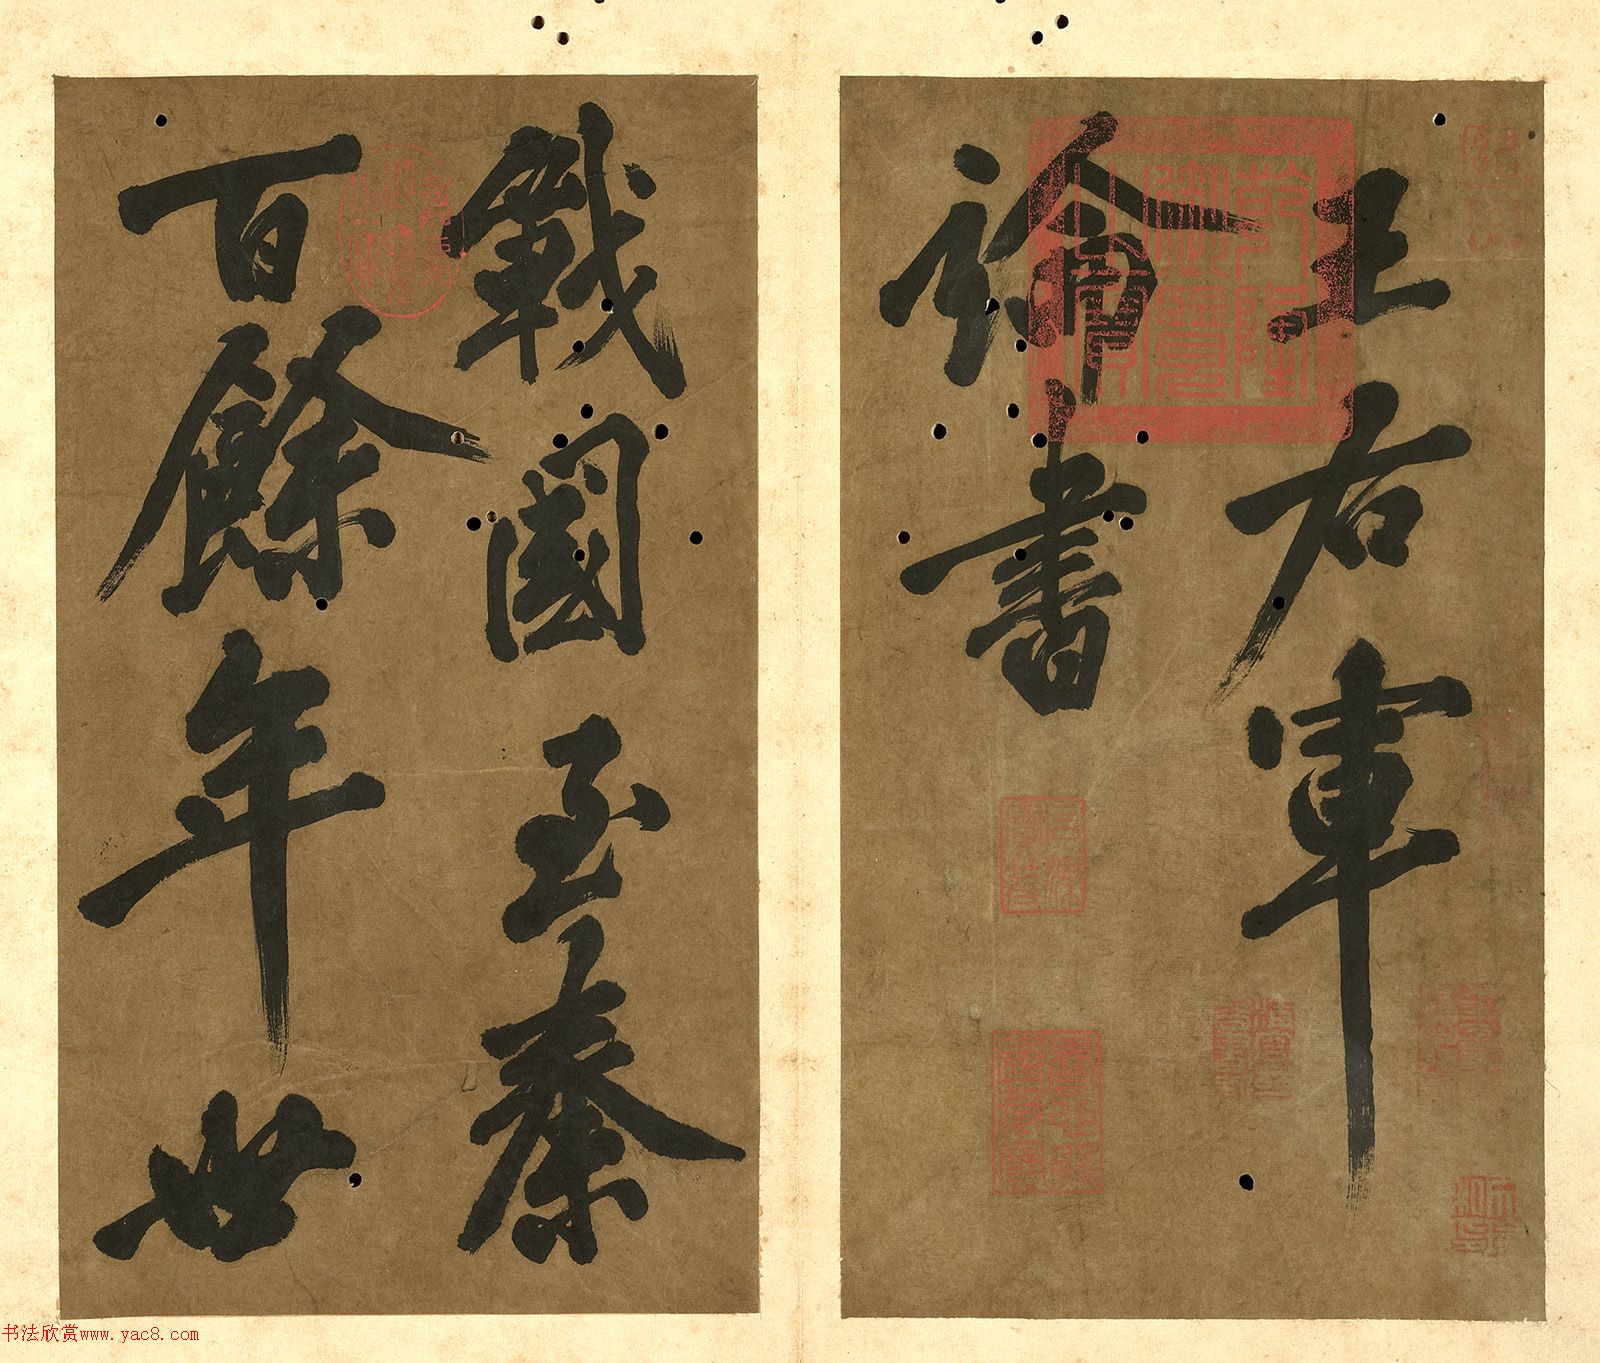 王右軍
論書
戰國至秦
百餘年世
乾隆御覽之寶
书法欣赏www.yac8.com